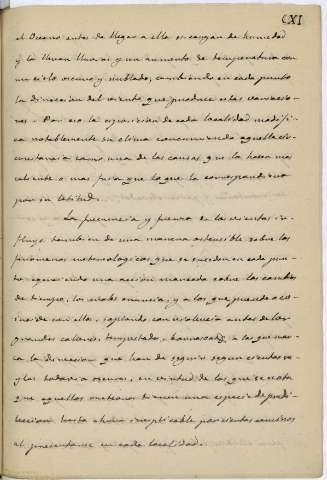 CXI
el Oceano antes de llegar a ella se cargan de humedad
y la llevan lluvias y un aumento de temperatura con
un cielo oscuro y nublado, cambiando en cada punto
la direccion del viento que produce estas variacio-
nes. Por eso la exposicion de cada localidad modifi-
ca notablemente su clima concurriendo aquella cir-
cunstancia como una de las causas que la hacen mas
caliente o mas fria que lo que la corresponderia
por su latitud.
La frecuencia y fuerza de los vientos in-
fluye tambien de una manera ostensible sobre los
fenomenos meteorologicos que se suceden en cada pun-
to ejerciendo una accion marcada sobre los cambios
de tiempo, los cuales anuncia, y a los que puede
soplando con violencia antes de los
grandes calores, tempestades, borrascas, a los que mar-
ca la direccion que han de seguir segun
y las todavia oscuras, en virtud de las que se nota
que aquellos meteoros tienen una especie de predi-
leccion hasta ahora inexplicable por ciertos caminos
al presentarse en cada localidad.